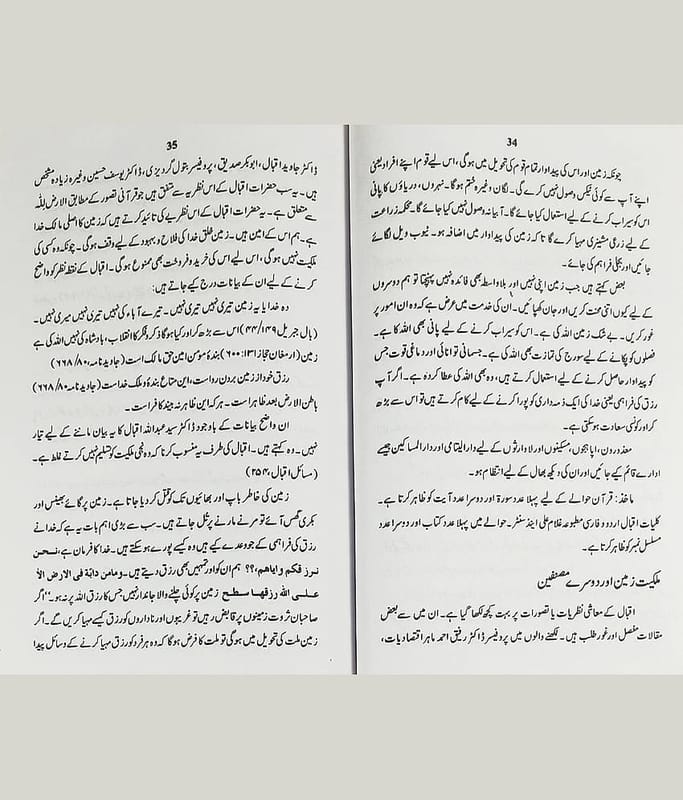 34
چونکہ زمین اور اس کی پیداوار تمام قوم کی تحویل میں ہوگی، اس لیے قوم اپنے افراد یعنی
اپنے آپ سے کوئی ٹیکس وصول نہیں کرے گی۔ لگان وغیرہ ختم ہوگا۔ نہروں، دریاؤں کا پانی
اس کو سیراب کرنے کے لیے استعمال کیا جائے گا۔ آبیانہ وصول نہیں کیا جائے گا۔ محکمہ زراعت
کے لیے زرعی مشینری مہیا کرے گا تاکہ زمین کی پیداوار میں اضافہ ہو۔ ٹیوب ویل لگائے
جائیں اور بجلی فراہم کی جائے۔
بعض کہتے ہیں جب زمین اپنی نہیں اور بلاواسطہ بھی فائدہ نہیں پہنچتا تو ہم دوسروں
کے لیے کیوں اتنی محنت کریں اور جان کھپائیں۔ ان کی خدمت میں عرض ہے کہ وہ ان امور پر
غور کریں۔ بے شک زمین اللہ کی ہے۔ اس کو سیراب کرنے کے لیے پانی بھی اللہ کا ہے۔
فصلوں کو پکانے کے لیے سورج کی تمازت بھی اللہ کی ہے۔ جسمانی توانائی اور دماغی قوت جس
کو پیداوار حاصل کرنے کے لیے استعمال کرتے ہیں، وہ بھی اللہ کی عطا کردہ ہے۔ اگر آپ
رزق کی فراہمی یعنی خدا کی ایک ذمہ داری کو پورا کرنے کے لیے کام کرتے ہیں تو اس سے بڑھ
کر اور کونسی سعادت ہوسکتی ہے۔
معذورون، اپاہجوں، مسکینوں اور لاوارثوں کے لیے دارالیتامیٰ اور دارالمساکین جیسے
ادارے قائم کیے جائیں اور ان کی دیکھ بھال کے لیے انتظام ہو۔
ماخذ: قرآن حوالے کے لیے پہلا عدد سورۃ اور دوسرا عدد آیت کو ظاہر کرتا ہے۔
کلیات اقبال اردو و فارسی مطبوعہ غلام علی اینڈ سنٹر۔ حوالے میں پہلا عدد کتاب اور دوسرا عدد
مسلسل نمبر کو ظاہر کرتا ہے۔
ملکیت زمین اور دوسرے مصنفین
اقبال کے معاشی نظریات یا تصورات پر بہت کچھ لکھا گیا ہے۔ ان میں سے بعض
مقالات مفصل اور غور طلب ہیں۔ لکھنے والوں میں پروفیسر ڈاکٹر رفیق احمد ماہر اقتصادیات،
35
ڈاکٹر جاوید اقبال، ابوبکر صدیق، پروفیسر بتول گردیزی، ڈاکٹر یوسف حسین وغیرہ زیادہ مشخص
ہیں۔ یہ سب حضرات اقبال کے اس نظریہ سے متفق ہیں جو قرآنی تصور کے مطابق الارض للہ
سے متعلق ہے۔ یہ حضرات اقبال کے اس نظریے کی تائید کرتے ہیں کہ زمین کا اصلی مالک خدا
ہے۔ ہم اس کے امین ہیں۔ زمین خلق خدا کی فلاح و بہبود کے لیے وقف ہوگی۔ چونکہ وہ کسی کی
ملکیت نہیں ہوگی، اس لیے اس کی خرید و فروخت بھی ممنوع ہوگی۔ اقبال کے نقطہ نظر کو واضح
کرنے کے لیے ان کے بیانات درج کیے جاتے ہیں:
دہ خدا یا یہ زمین تیری نہیں تیری نہیں۔ تیرے آباء کی نہیں تیری نہیں میری نہیں۔
(بال جبریل ۴۴/۱۴۹) اس سے بڑھ کر اور کیا ہوگا فکر و ذکر کا انقلاب، بادشاہ کی نہیں اللہ کی ہے
زمین (ارمغان حجاز ۱۳۱:۶۰۰) بندۂ مومن امین حق مالک است (جاوید نامہ ۶۶۸/۸۰)
رزق خود از زمین بردن رواست، این متاع بندہ و ملک خداست (جاوید نامہ ۶۶۸/۸۰)
باطن الارض بعد ظاہر است۔ ہر کہ این ظاہر نہ بیند کافر است۔
ان واضح بیانات کے باوجود ڈاکٹر سید عبداللہ اقبال کا یہ بیان ماننے کے لیے تیار
نہیں۔ وہ کہتے ہیں۔ اقبال کی طرف یہ منسوب کرنا کہ وہ نجی ملکیت کو تسلیم نہیں کرتے غلط ہے۔
(مسائل اقبال، ۲۵۴)
زمین کی خاطر باپ اور بھائیوں تک کو قتل کر دیا جاتا ہے۔ زمین پر گائے بھینس اور
بکری گھس آئے تو مرنے مارنے پر تل جاتے ہیں۔ سب سے بڑی اہم بات یہ ہے کہ خدا نے
رزق کی فراہمی کے جو وعدے کیے ہیں وہ کیسے پورے ہوسکتے ہیں۔ خدا کا فرمان ہے، نحن
نرزقکم وایاھم،؟؟ ہم ان کو اور تمہیں بھی رزق دیتے ہیں۔ ومامن دابۃ فی الارض الا
علی اللہ رزقھا سطح زمین پر کوئی چلنے والا جاندار نہیں جس کا رزق اللہ پر نہ ہو۔'' اگر
صاحبان ثروت زمینوں پر قابض رہیں تو غریبوں اور ناداروں کو رزق کیسے مہیا کریں گے۔ اگر
زمین ملت کی تحویل میں ہوگی تو ملت کا فرض ہوگا کہ وہ ہر فرد کو رزق مہیا کرنے کے وسائل پیدا